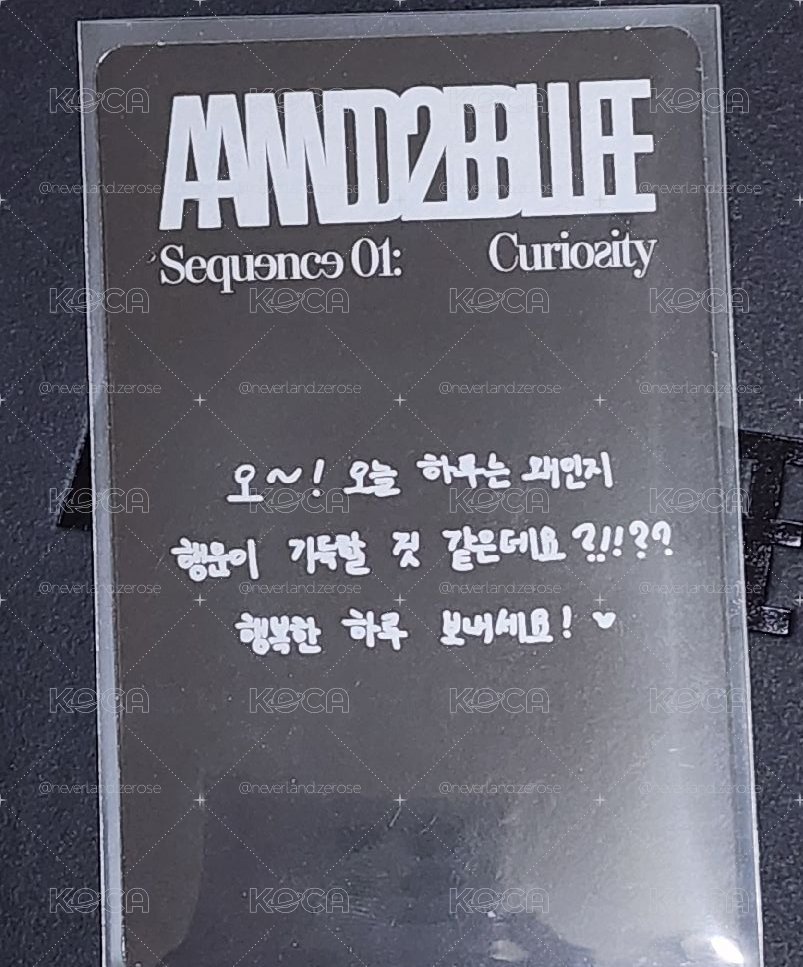 AAMND2BBLUE
Sequence 01: Curiosity
오~! 오늘 하루는 왜인지
행운이 가득할 것 같은데요?!!??
행복한 하루 보내세요! ♥
KOCA
@neverlandzerose